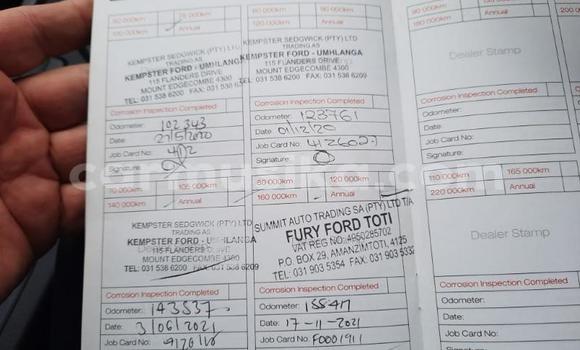 50 000km 75 000km
100 000km Annual
60 000km 90 000km
120 000km Annual
180 000km Annual
200 00
KEMPSTER SEDGWICK (PTY) LTD
TRADING AS
KEMPSTER FORD - UMHLANGA
115 FLANDERS DRIVE
MOUNT EDGECOMBE 4300
TEL: 031 538 6200
Corrosion Inspection Completed
Odometer: 102 343
Date: 27/5/2020
Job Card No:
Signature:
KEMPSTER SEDGWICK (PTY) LTD
TRADING AS
KEMPSTER FORD - UMHLANGA
115 FLANDERS DRIVE
MOUNT EDGECOMBE 4300
TEL: 031 538 6200 FAX: 031 538 6209
Corrosion Inspection Completed
Odometer: 123761
Date: 01/12/20
Job Card No: 412602-1
Signature:
Dealer Stamp
Corrosion Inspection Completed
Odometer:
Date:
Job Card No:
Signature:
70 000km 105 000km
140 000km Annual
80 000km 120 000km
160 000km Annual
110 000km 165 000km
220 000km Annual
KEMPSTER SEDGWICK (PTY) LTD
TRADING AS
KEMPSTER FORD - UMHLANGA
115 FLANDERS DRIVE
MOUNT EDGECOMBE 4300
TEL: 031 538 6200 FAX: 031 538 6209
Corrosion Inspection Completed
Odometer: 143537
Date: 3/06/2021
Job Card No:
SUMMIT AUTO TRADING SA (PTY) LTD T/A
FURY FORD TOTI
VAT REG NO: 4950285702
P.O. BOX 29, AMANZIMTOTI, 4125
TEL: 031 903 5354 FAX: 031 903 5332
Corrosion Inspection Completed
Odometer: 155417
Date: 17-11-2021
Job Card No: F0001911
Dealer Stamp
Corrosion Inspection Completed
Odometer:
Date:
Job Card No: